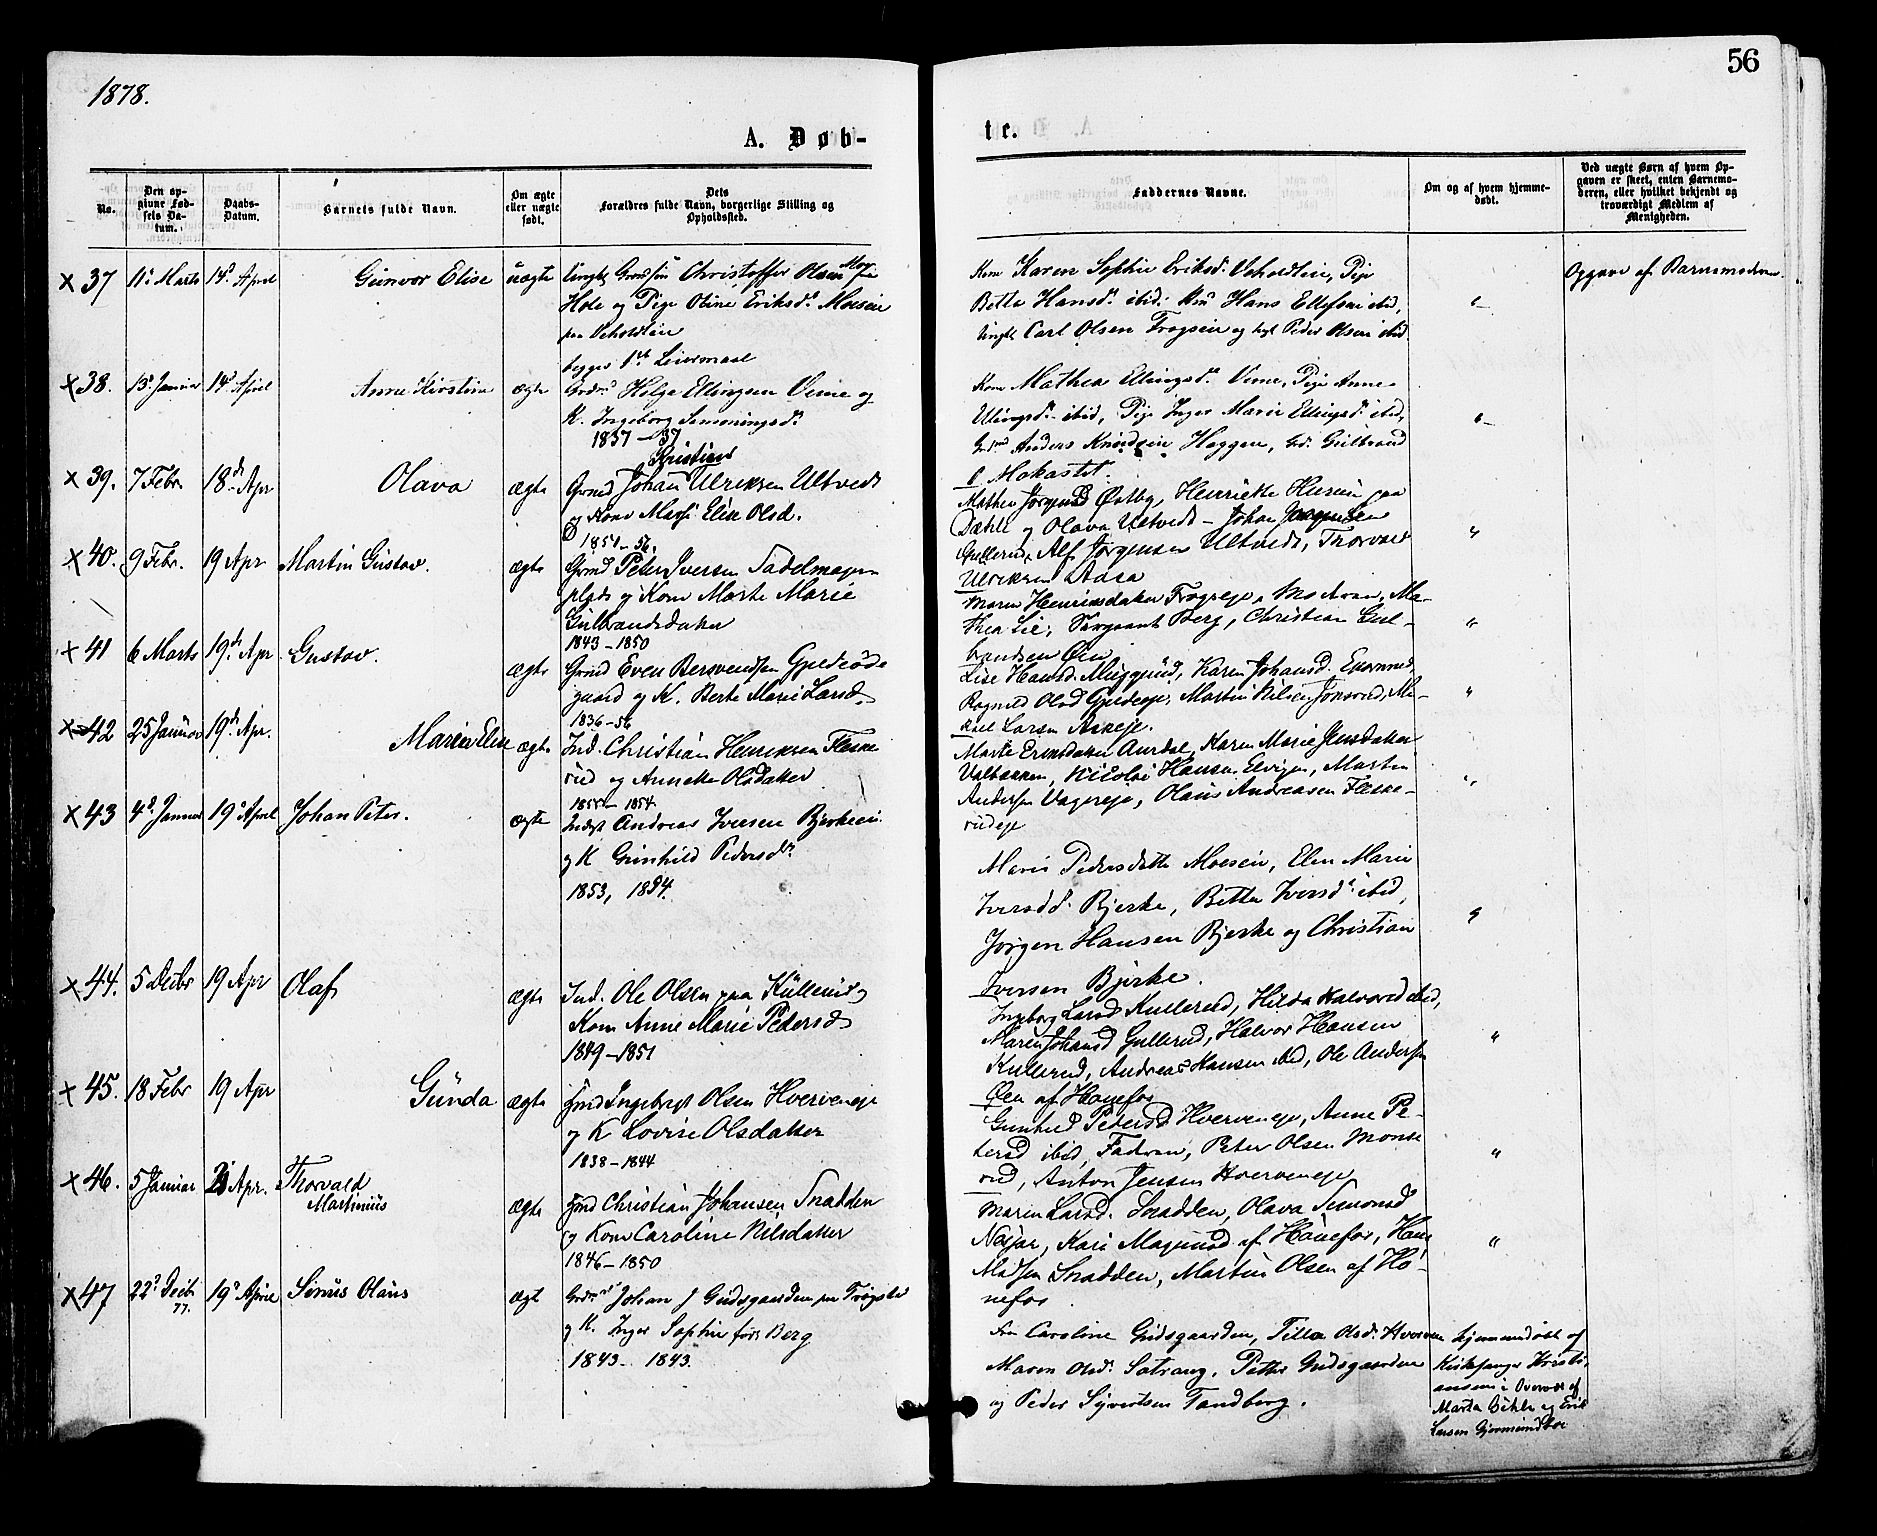 1878.
56
A. Døb-
te.
No.
Den op-
givne Fød-
sels Da-
tum.
Daabs-
Datum.
Barnets fulde Navn.
Om ægte
eller uægte
født.
Dets
Forældres fulde Navn, borgerlige Stilling og
Opholdssted.
Faddernes Navne.
Om og af hvem hjemme-
døbt.
Ved uægte Børn af hvem Op-
gaven er skeet, enten Barnemo-
deren, eller hvilket bekjendt og
troværdigt Medlem af
Menigheden.
x 37 11te Marts 14d April Gunvor Elise uægte Ungk. Christoffer Olsen
Hole og Pige Oline Eriksd. Moesein
paa Veholdtlien
begges 1ste Leiermaal
Kone Karen Sophie Eriksd. Veholdtlien, Pige
Bette Hansd. ibid. Hans Ellefsen ibid,
Ungk. Carl Olsen Frogsein og Peder Olsen ibid.
Opgave af Barnemoderen.
x 38. 13d Januar 14d April Anne Kirstine ægte Helge Ellingsen Veme og
K. Ingeborg Simoningsd.
1837 – 37
Kone Mathea Ellingsd. Veme, Pige Anne
ibid, Pige Inger Marie Ellingsd. ibid,
Anders Knudsen Haggen, Gulbrand
Mokastet.
x 39. 7 Febr. 18de Apr Olava ægte Kristians
Grmd Johan Ulriksen Ultvedt
og Kone Marie Elise Olsd.
1851 – 56.
Mathea Jørgensd Østby, Henrikke Husein paa
Dæhli og Olava Ultvedt – Johan Jørgensen
Gullerud, Alf Jørgensen Ultvedt, Thorvald
Ulriksen Aasa
x 40. 9 Febr. 19 Apr Martin Gustav. ægte Grmd Peter Iversen Sadelmager-
plads og Kone Marte Marie
Gulbrandsdatter
1843 – 1850
Maren Henriksdatter Frogeje, Moderen, Ma-
thea Lie, Sergeant Berg, Christian Gul-
brandsen Øen
x 41 6 Marts 19de Apr Gustav. ægte Grmd Even Bersvendsen Gjeldeøde
gaard og K. Berte Marie Larsd.
1836 – 56
Lise Hansd. Muggerud, Karen Johansd.
Ragnild Olsd Gjeldeeje, Martin Nilsen Jonsrud, Mi-
kael Larsen Askeje.
x 42 25 Januar 19de Apr. Maria Elise ægte Ind. Christian Henriksen Fleske
rud og Annette Olsdatter
1855 – 1854
Marte Eriksdatter Aurdal, Karen Marie Jensdatter
Valbækken, Nicolai Hansen Elvigen, Martin
Andersen Vagereje, Olaus Andreasen Fleske-
rudeje
x 43 4d Januar 19d April Johan Peter. ægte Inds. Andreas Iversen Bjerkeein.
og K Gunhild Pedersd.
1853, 1854.
Maria Pedersdatter Moesein, Elen Marie
Iversdd. Bjerke, Bette Iversd. ibid,
Jørgen Hansen Bjerke og Christian
Iversen Bjerke.
x 44. 5 Decbr 19 Apr Olaf ægte Ind. Ole Olsen paa Kullerud og
Kone Anne Marie Pedersd.
1849 – 1851
Ingeborg Larsd Kullerud, Hilda Halvorsd ibid,
Maren Johansd Gullerud, Halvor Hansen
Kullerud, Andreas Hansen ibid, Ole Andersen
Øen af Hønefos
x 45. 18 Febr 19 Apr Gunda ægte Grmd Ingebregt Olsen Hverveneje
og K Lovise Olsdatter
1838 – 1844
Gunhild Pedersd Hverveneje, Anne Pe-
tersd ibid, Fadren, Peter Olsen Monse
rud, Anton Jensen Hverveneje
x 46. 5 Januar 21 Apr. Thorvald
Martinius ægte Grmd Christian Johansen Snadden
og Kone Caroline Nilsdatter
1846 – 1850
Maren Larsd. Snadden, Olava Simonsd
Kari Magnusd af Hønefos, Hans
Madsen Snadden, Martin Olsen af Hø-
nefos
x 47 22d Decbr
77. 19d April Sirius Olaus ægt Johan J Gudsgaarden paa Trøgstad
og K. Inger Sophie født Berg
1843 – 1843.
Fru Caroline Gudsgaarden, Tilla Olsd. Hverven
Maren Olsd. Sætrang, Petter Gudsgaarden
og Peder Syvertsen Tandberg.
hjemmedøbt af
Kirkesanger Kristi-
ansen i Overvær af
Marta Bihli og Erik
Larsen Gjermundboe